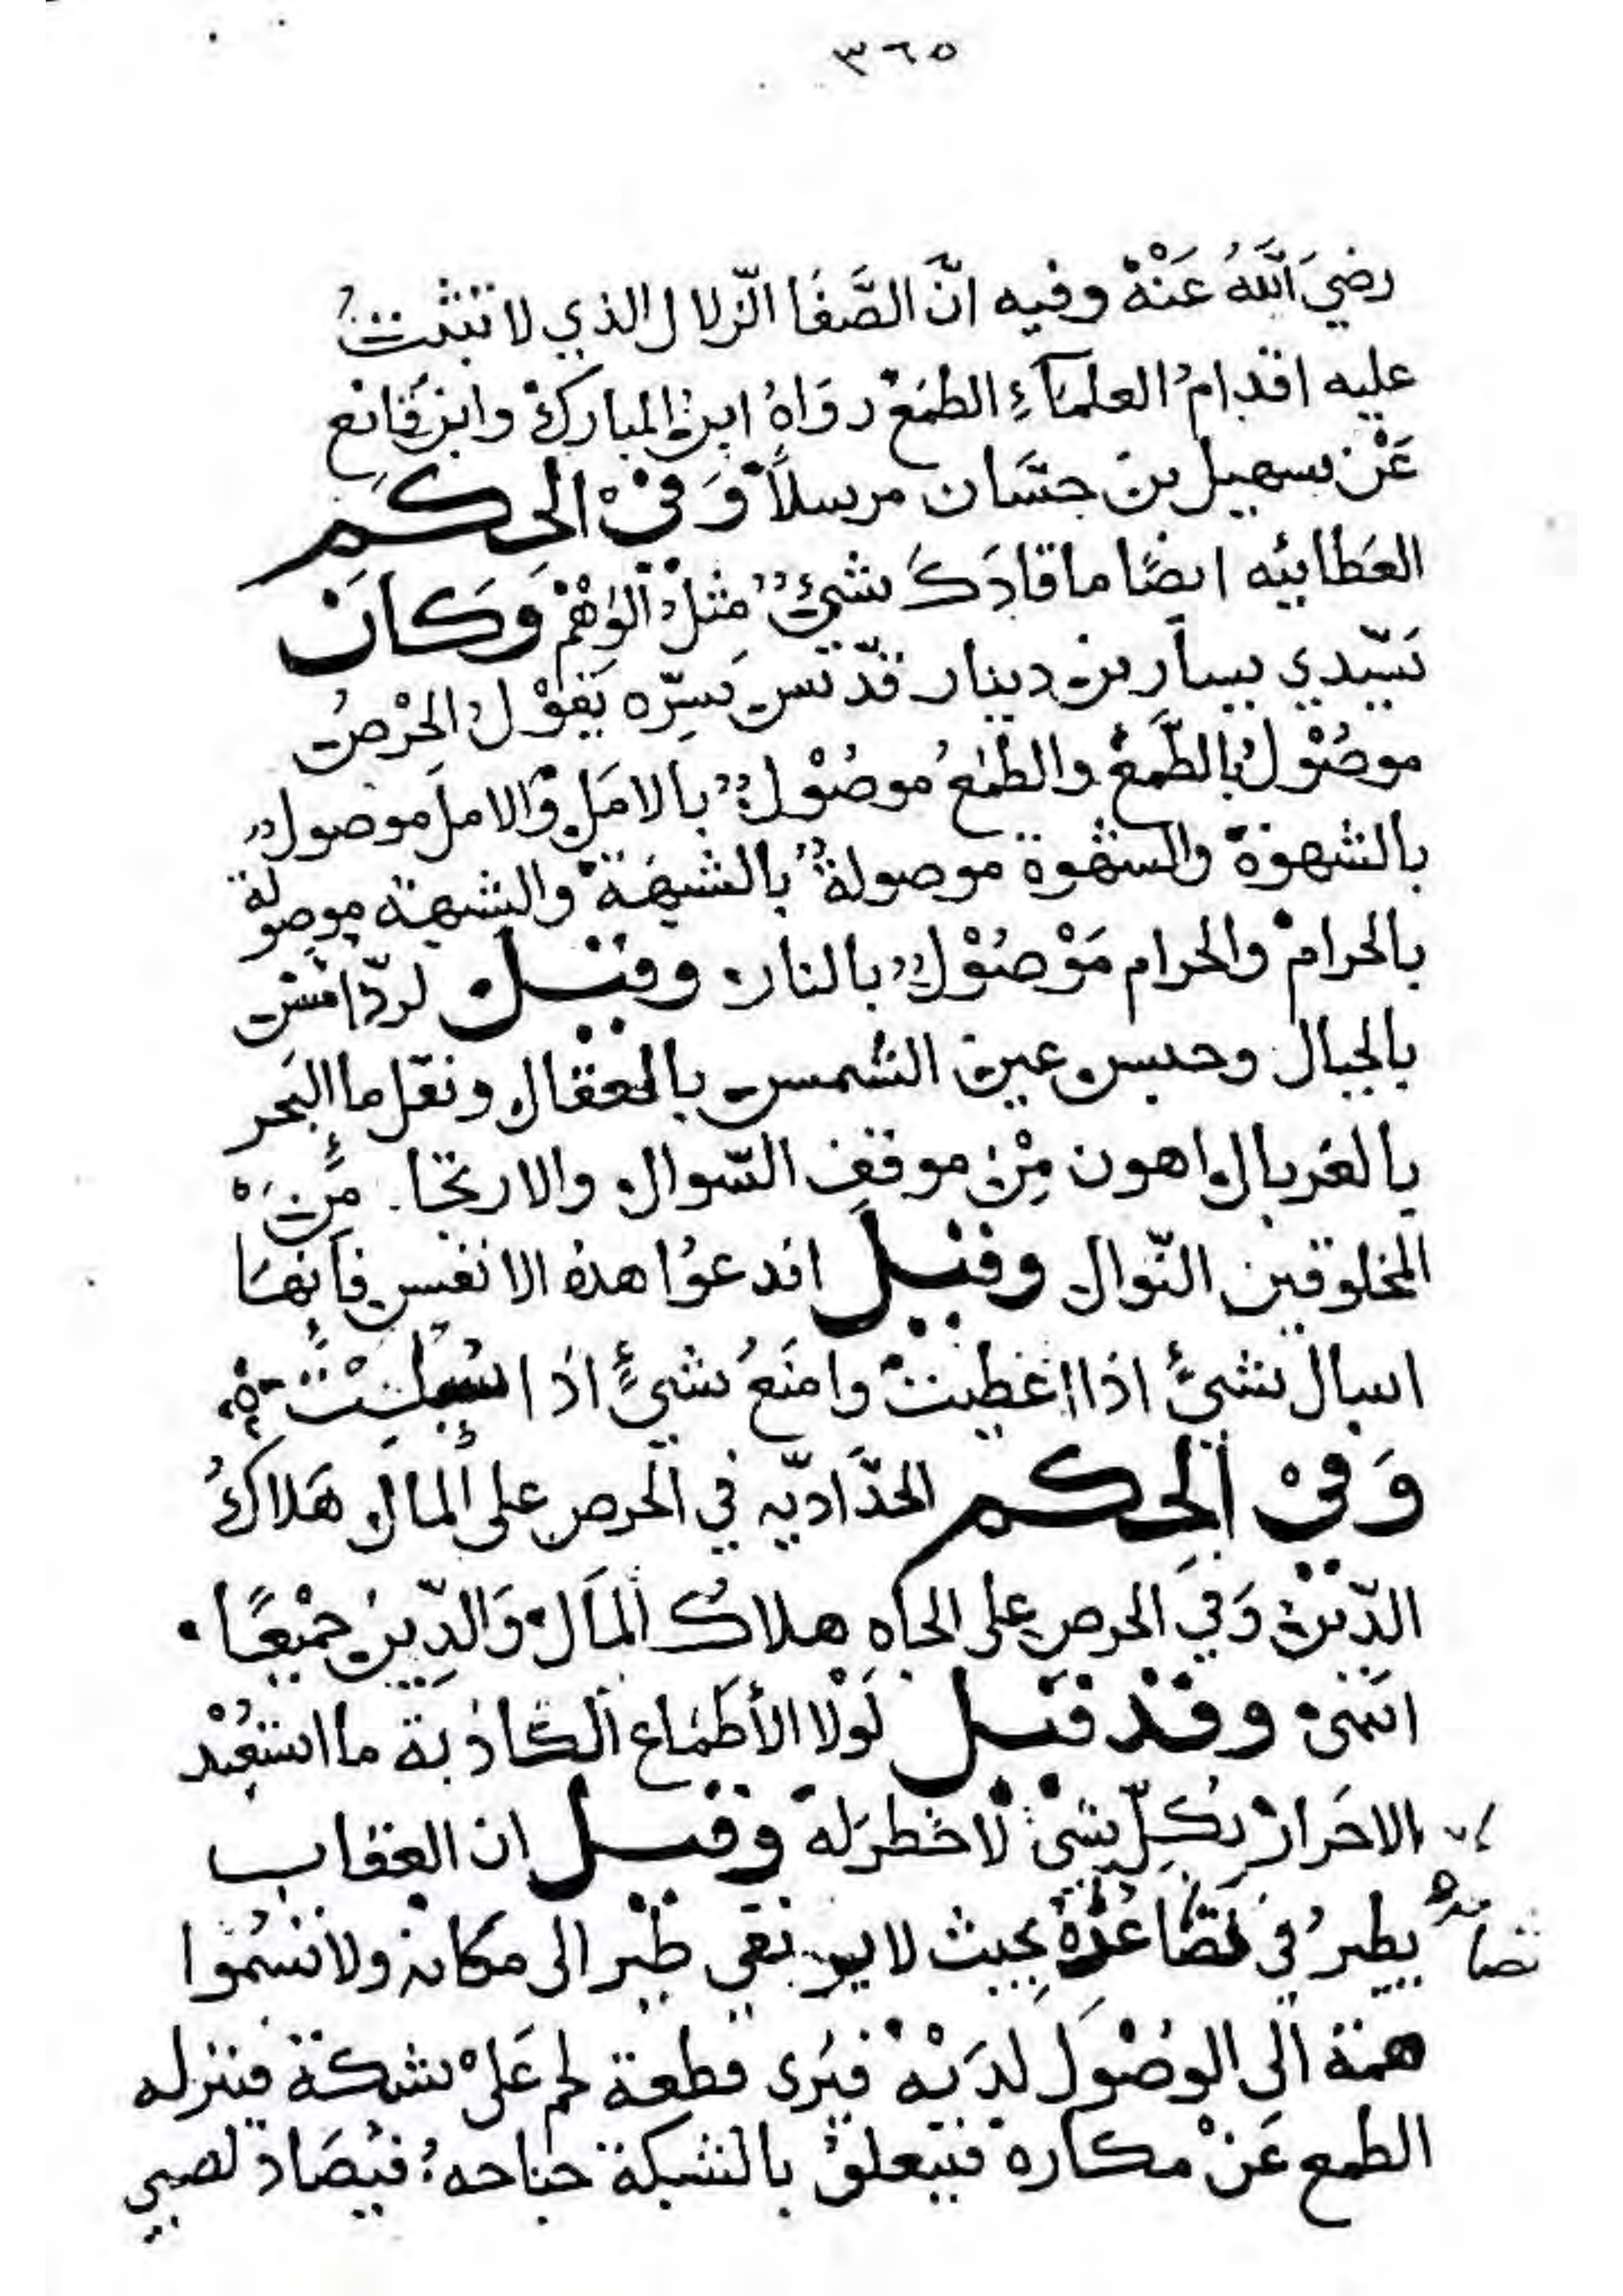 ٣٦٥
رضيَ اللّٰهُ عَنْهُ وفيه انّ الصَّفَا الزّلال الذي لا تثبتُ
عليه اقدامُ العلمآءِ الطمَعْ رَوَاهُ ابنُ المباركْ وابن قَانع
عَنْ سهيل بن حسَّان مرسلاً وَفيْ الحِكَم
العَطائيه ايضًا ما قادَكَ شئٌ مثلُ الوَهْمْ وَكَانَ
سَيّدي يسار بن دينار قدّس سِرّه يَقوْلُ الحْرصُ
موصُوْلٌ بالطّمعْ والطمعُ موصُوْلٌ بالامَلِ وَالامل موصولٌ
بالشهوَة والشهوة موصولةٌ بالشبهَة والشبهة موصولة
بالحرامْ والحرام مَوْصُوْلٌ بالنار وقيل لردّ امس
بالجبال وحبس عين الشمس بالعقال ونقل ماالبَحر
بالغربال اهون مِنْ موقف السّوال والارتجاء مِن
المخلوقين النّوال وقيل اقدعوُا هذه الانفس فَانهَا
اسال شئٍ اذا اعطيت وامنَعُ شئٍ اذا سُئِلَتْ
وَفيْ الحِكم الحدّاديّه في الحرص على المال هَلاكُ
الدّين وَفي الحرص على الجاه هلاكُ المَال وَالدِّين جَميْعًا
انتهىٰ وقد قيل لَوْلا الأطمَاع الكَاذبة ما استُعبِدْ
الاحَرارْ بكلّ شئ لا خطرَ له وقيل ان العقاب
يطيرُ في تصَاعدُهُ بحيث لا يرتقي طير الى مكانه ولا تسمُوا
تصاعده
همة الى الوصُوْل لدَيْه فيَرى قطعة لحم عَلىْ شبكة فينزله
الطمع عَنْ مكاره فيتعلق بالشبكة جناحه فيُصَاد لصبي